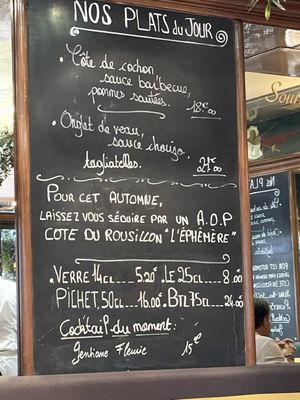 NOS PLATS du JOUR
• Côte de cochon
sauce barbecue,
pommes sautées.
18.€00
• Onglet de veau,
sauce chorizo,
tagliatelles.
21.€00
POUR CET AUTOMNE,
LAISSEZ VOUS SÉDUIRE PAR UN A.O.P
COTE DU ROUSILLON "L'ÉPHÉMÈRE"
. VERRE 14CL 5.20 . LE 25CL 8.00
PICHET 50CL 16.00€ BTL 75CL 24.00
Cocktail du moment :
Gentiane Fleurie 15€